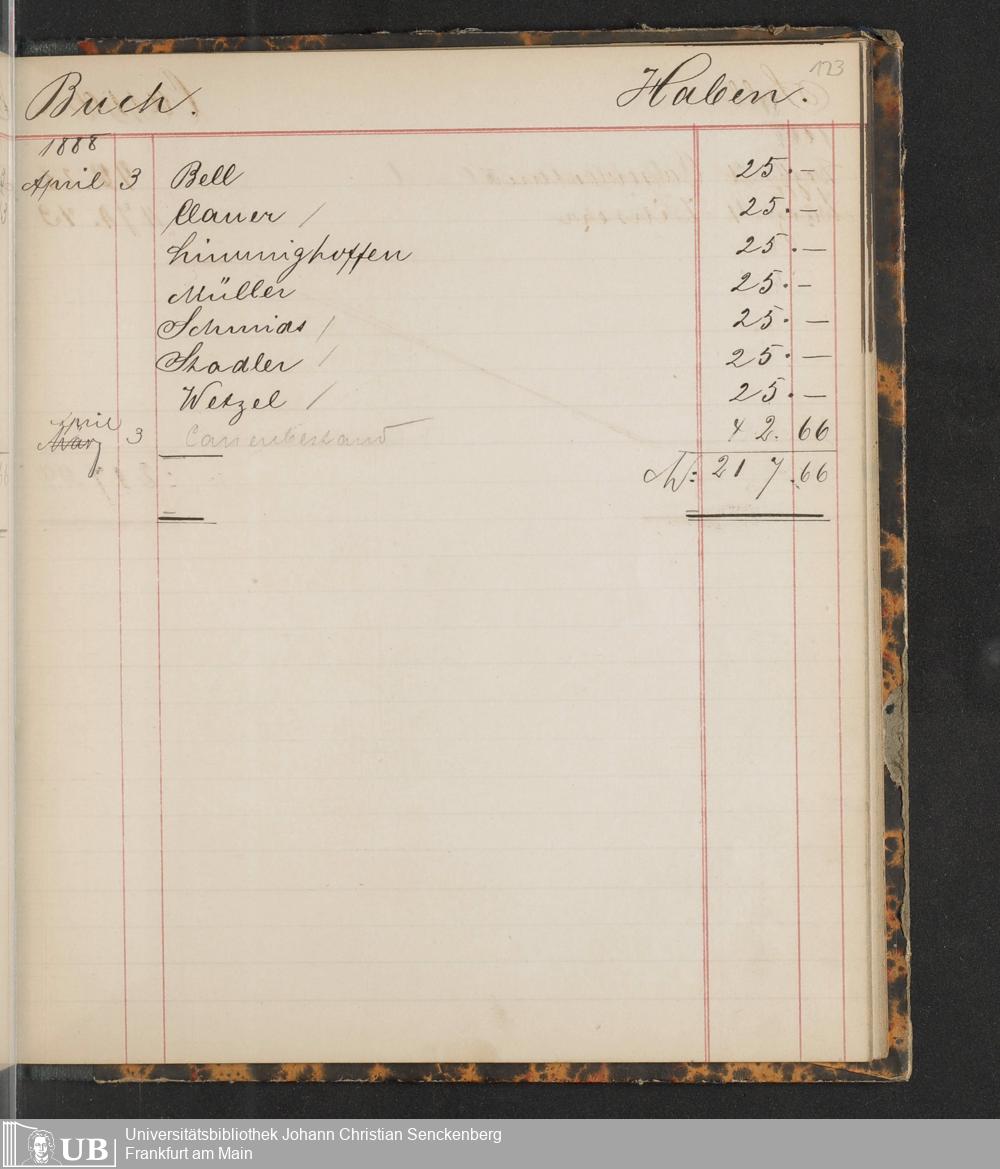 123
Buch. Haben.
1888
April 3 Bell 25.—
Clauer / 25.—
Limmighoffen 25.—
Müller 25.—
Schmids / 25.—
Stadler / 25.—
Wetzel / 25.—
April
März 3 Cassenbestand 42.66
M: 217.66
UB Universitätsbibliothek Johann Christian Senckenberg
Frankfurt am Main